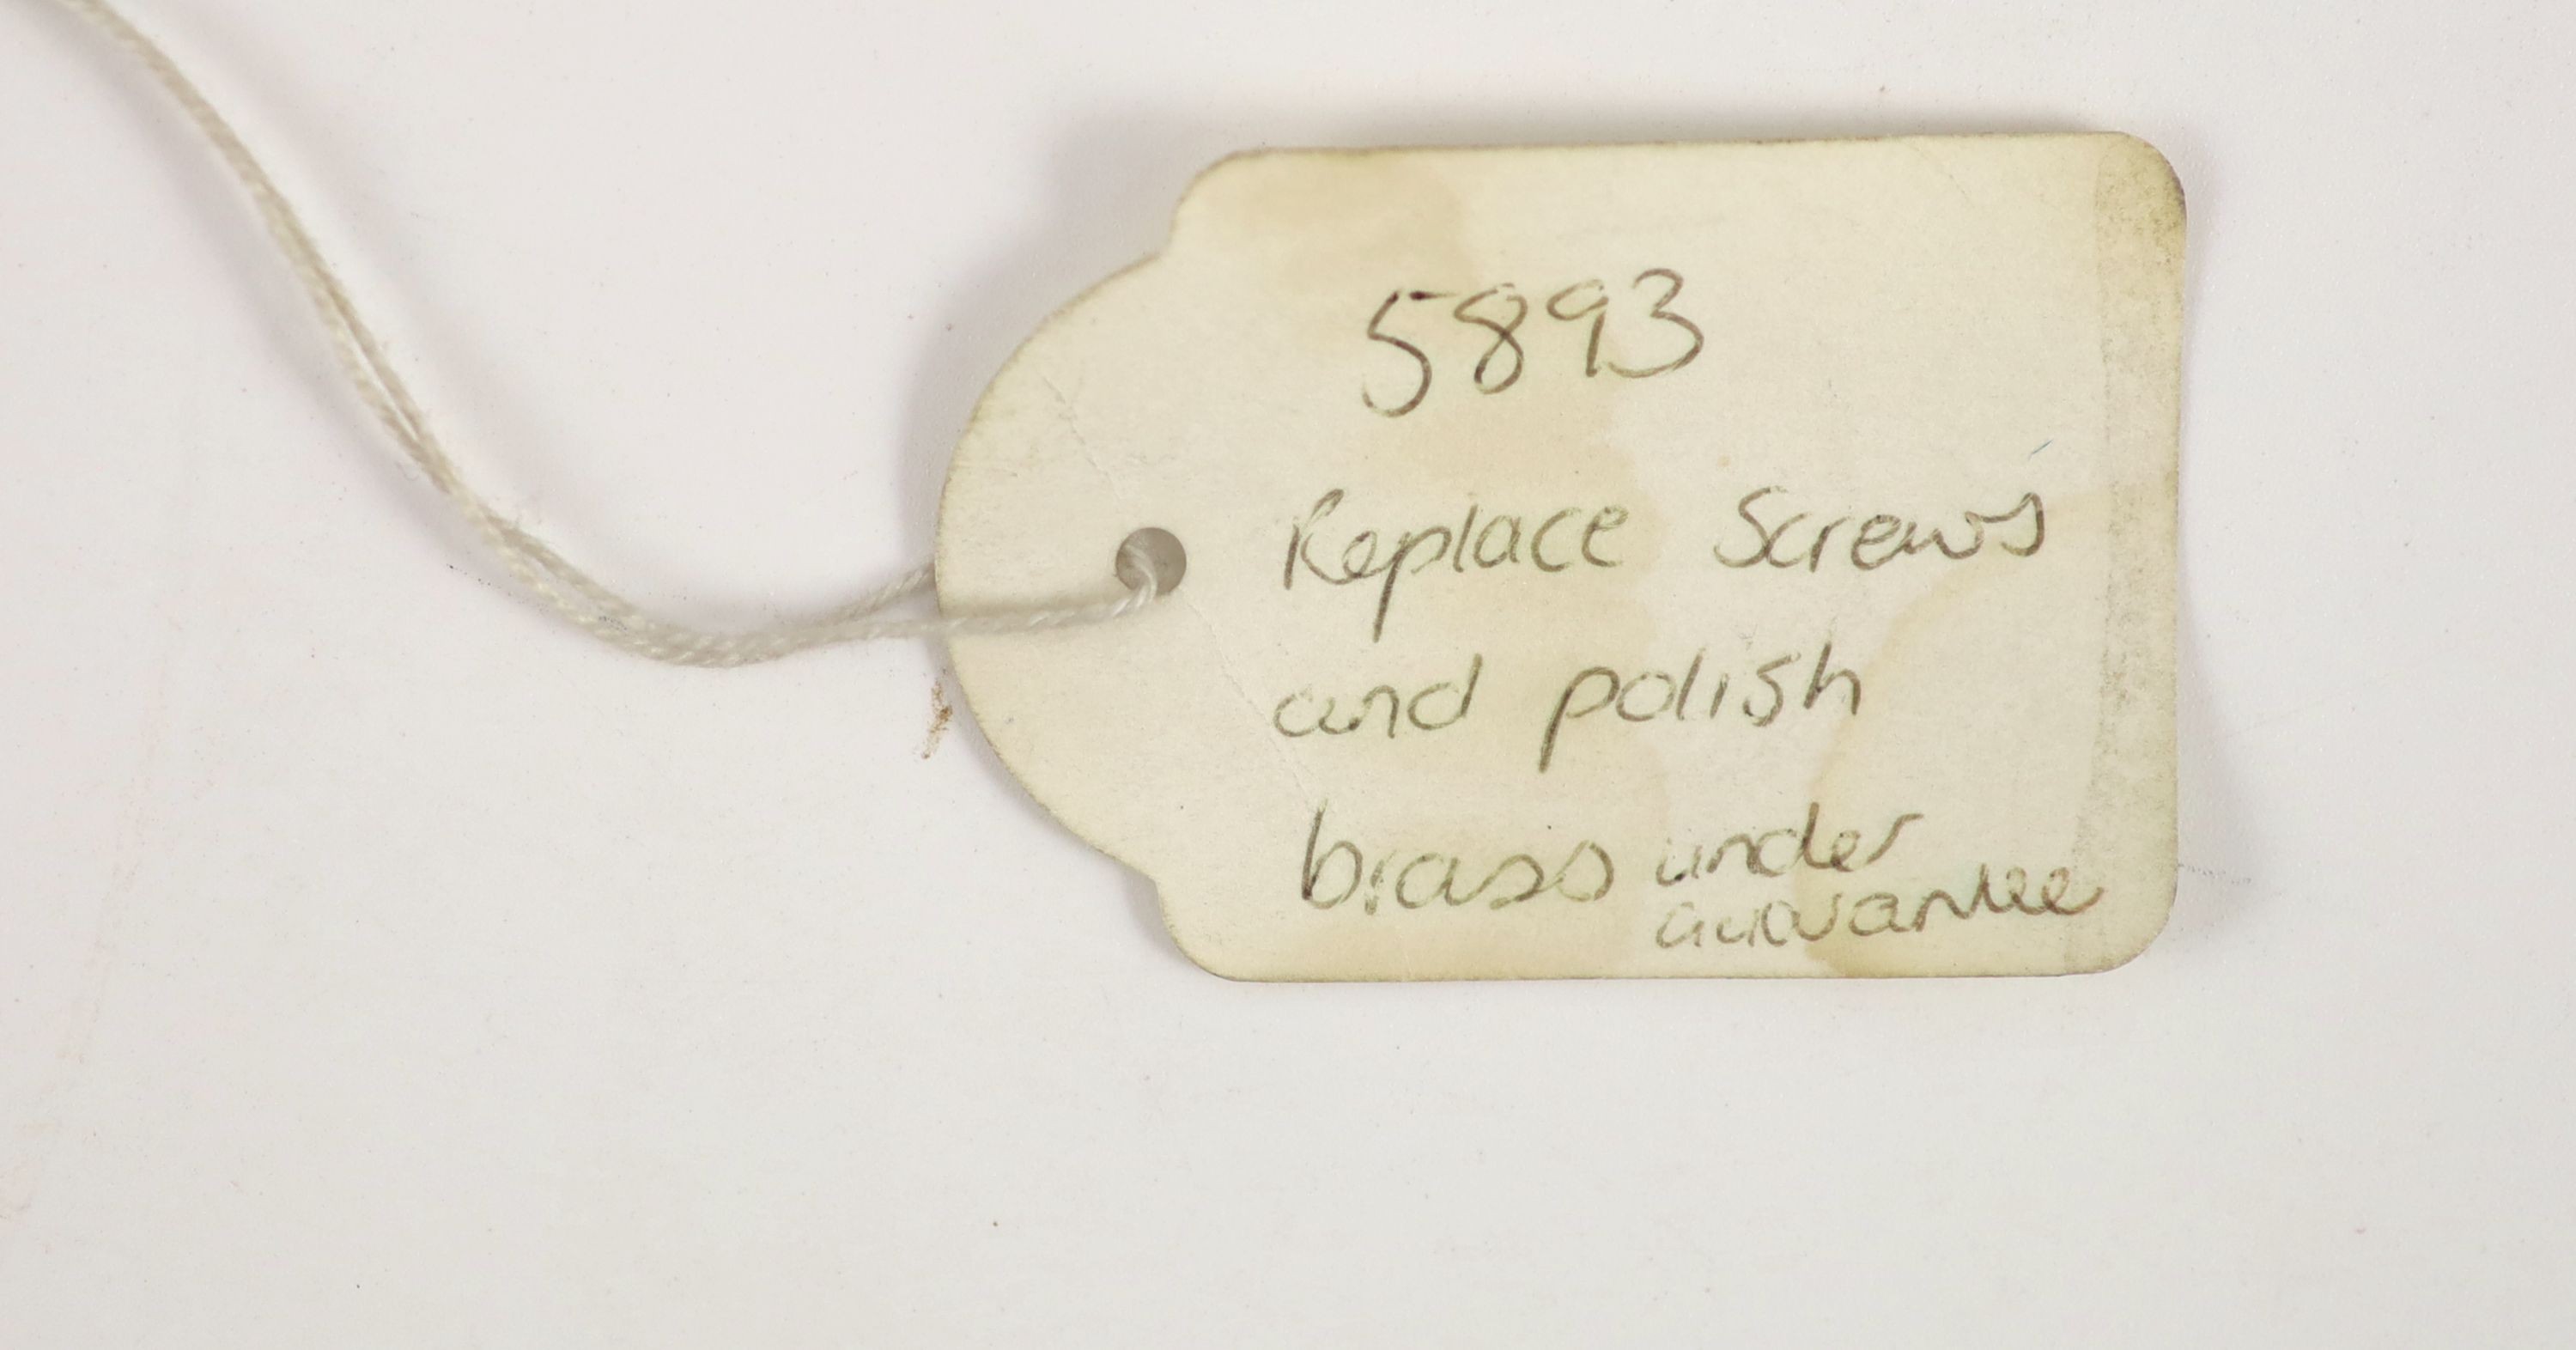 5893
Replace Screws
and polish
brass under
guarantee